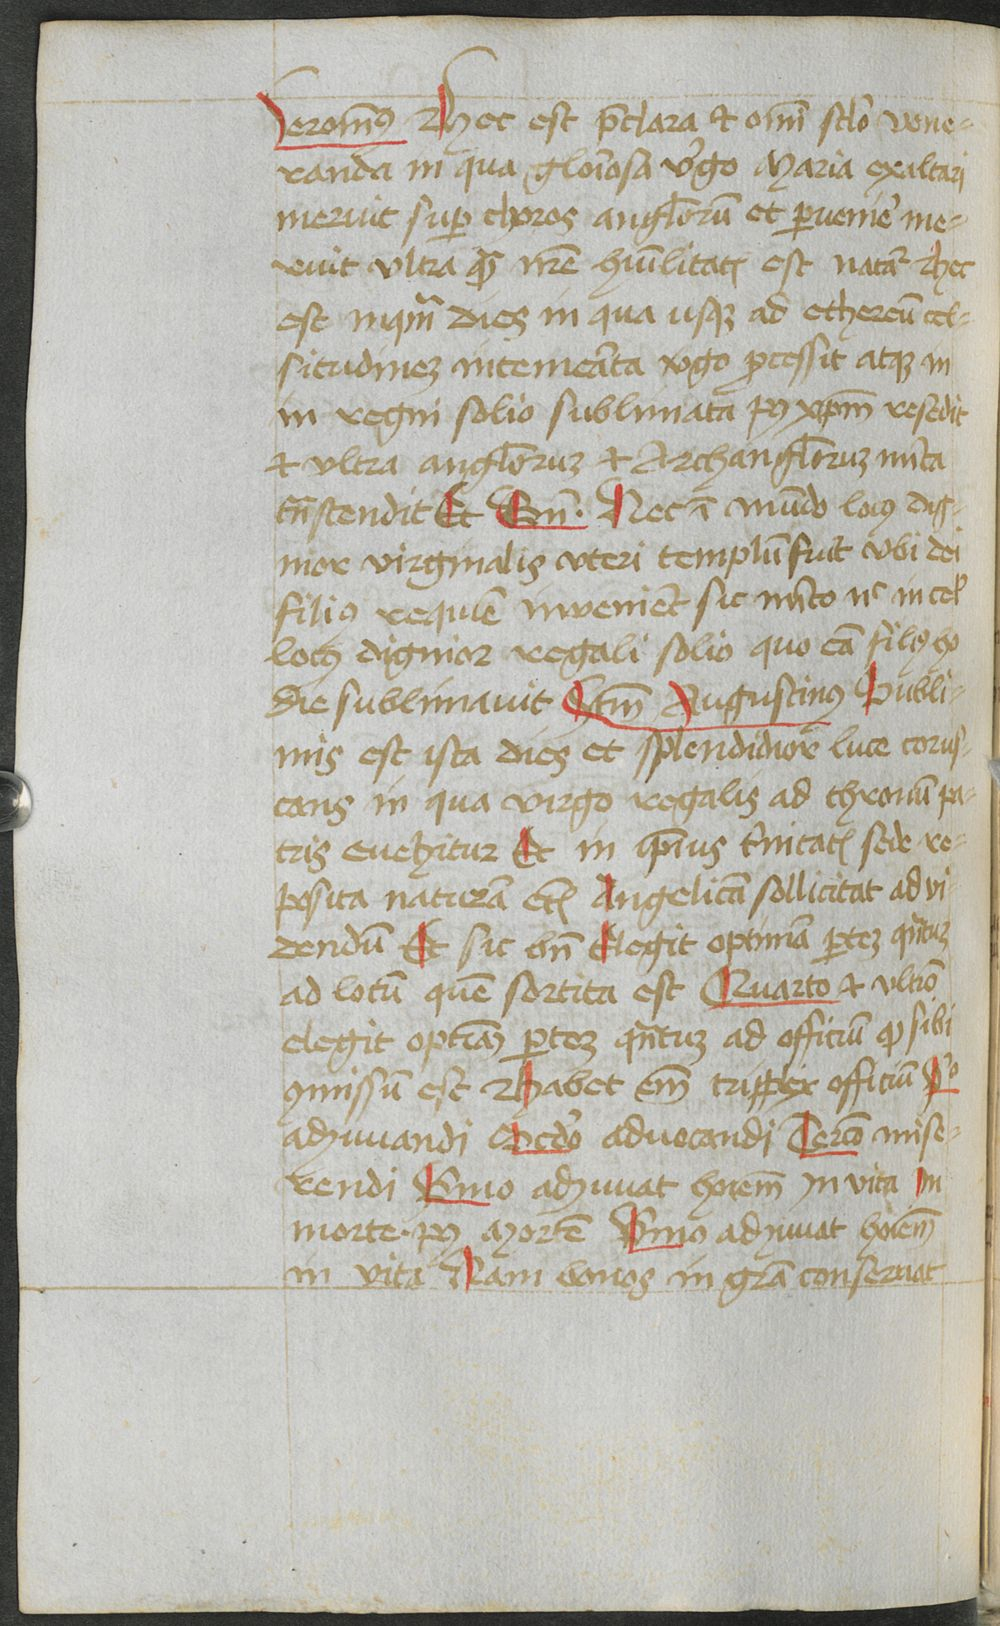 Jeronimꝯ Hec est p̄clara et om̄i sclo vene-
randa in qua gloriosa v̓go Maria exaltari
meruit suꝑ choros anglorū et ꝑvenie me-
ruit vltra nre hūilitatis est natā Hec
est inqm̄ dies in qua usqꝫ ad ethereū cel-
situdineꝫ intemeāta v̓go ꝓcessit atqꝫ in
in regni solio sublimata pꝯ xp̄m resedit
et vltra angloruꝫ et Archangloruꝫ mēta
cōscendit Et Bern̄. Nec ī mūdo locꝯ dig-
nior virginalis vteri templū fuit vbi dei
filiꝯ requiē inveniret sic mēto nc in cel̓
locꝯ dignior regali solio quo eā filiꝯ ho
die sublimauit Itm̄ Augustinꝯ Subli-
mis est ista dies et splendidior luce corus-
cans in qua virgo regalis ad thronū pa-
tris euehitur Et in ipius t̓nitatis sede re-
posita naturā etiā Angelicā sollicitat ad vi-
dendū Et sic bn̄ Elegit optimā ꝑteꝫ qn̄tuꝫ
ad locū quē sortita est Quarto et vltīo
elegit optimā ꝑteꝫ qn̄tuꝫ ad officiū ꝙ sibi
ꝯmissū est Habet em̄ triplex officiū P̓º
adiuuandi Secdo aduocandi Tercō mise-
rendi Primo adiuuat hoiem̄ In vita In
morte. pꝯ Mortē Primo adiuuat hoiem̄
in vita Nam bonos in grā conseruat